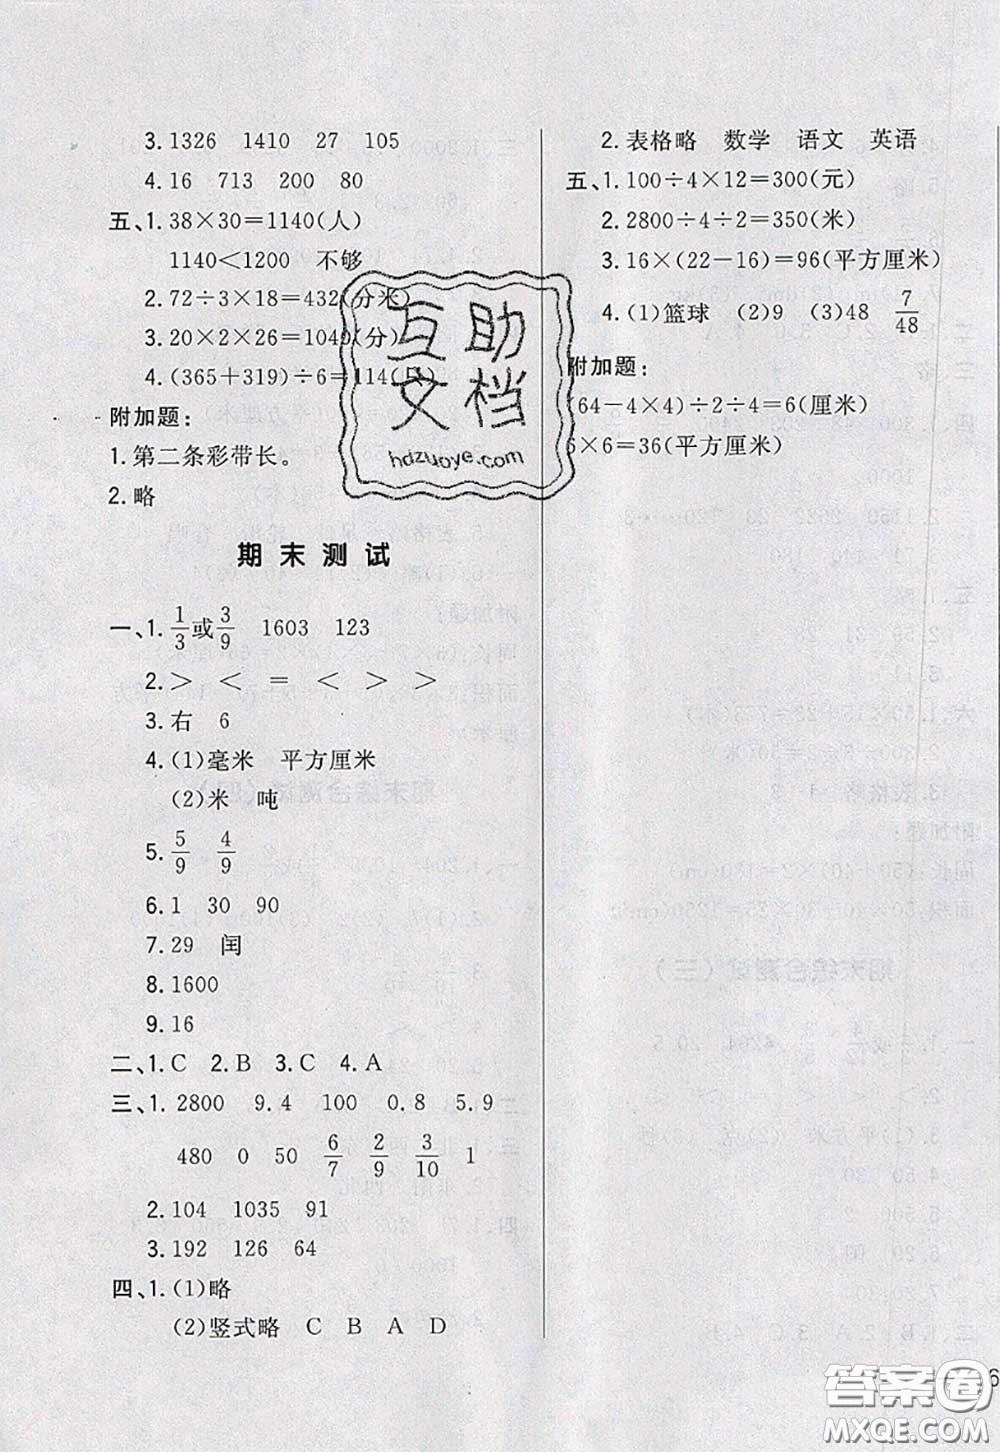 3. 1326 1410 27 105
4. 16 713 200 80
五、1. 38×30=1140(人)
1140<1200 不够
2. 72÷3×18=432(分米)
3. 20×2×26=1040(分)
4. (365+319)÷6=114(
附加题:
1. 第二条彩带长。
2. 略
期末测试
一、1. 1/3或3/9 1603 123
2. > < = < > >
3. 右 6
4. (1)毫米 平方厘米
(2)米 吨
5. 5/9 4/9
6. 1 30 90
7. 29 闰
8. 1600
9. 16
二、1. C 2. B 3. C 4. A
三、1. 2800 9.4 100 0.8 5.9
480 0 50 6/7 2/9 3/10 1
2. 104 1035 91
3. 192 126 64
四、1. (1)略
(2)竖式略 C B A D
2. 表格略 数学 语文 英语
五、1. 100÷4×12=300(元)
2. 2800÷4÷2=350(米)
3. 16×(22-16)=96(平方厘米)
4. (1)篮球 (2)9 (3)48 7/48
附加题:
(64-4×4)÷2÷4=6(厘米)
6×6=36(平方厘米)
互助
文档
hdzuoye.com
答案圈
MXQE.COM
6